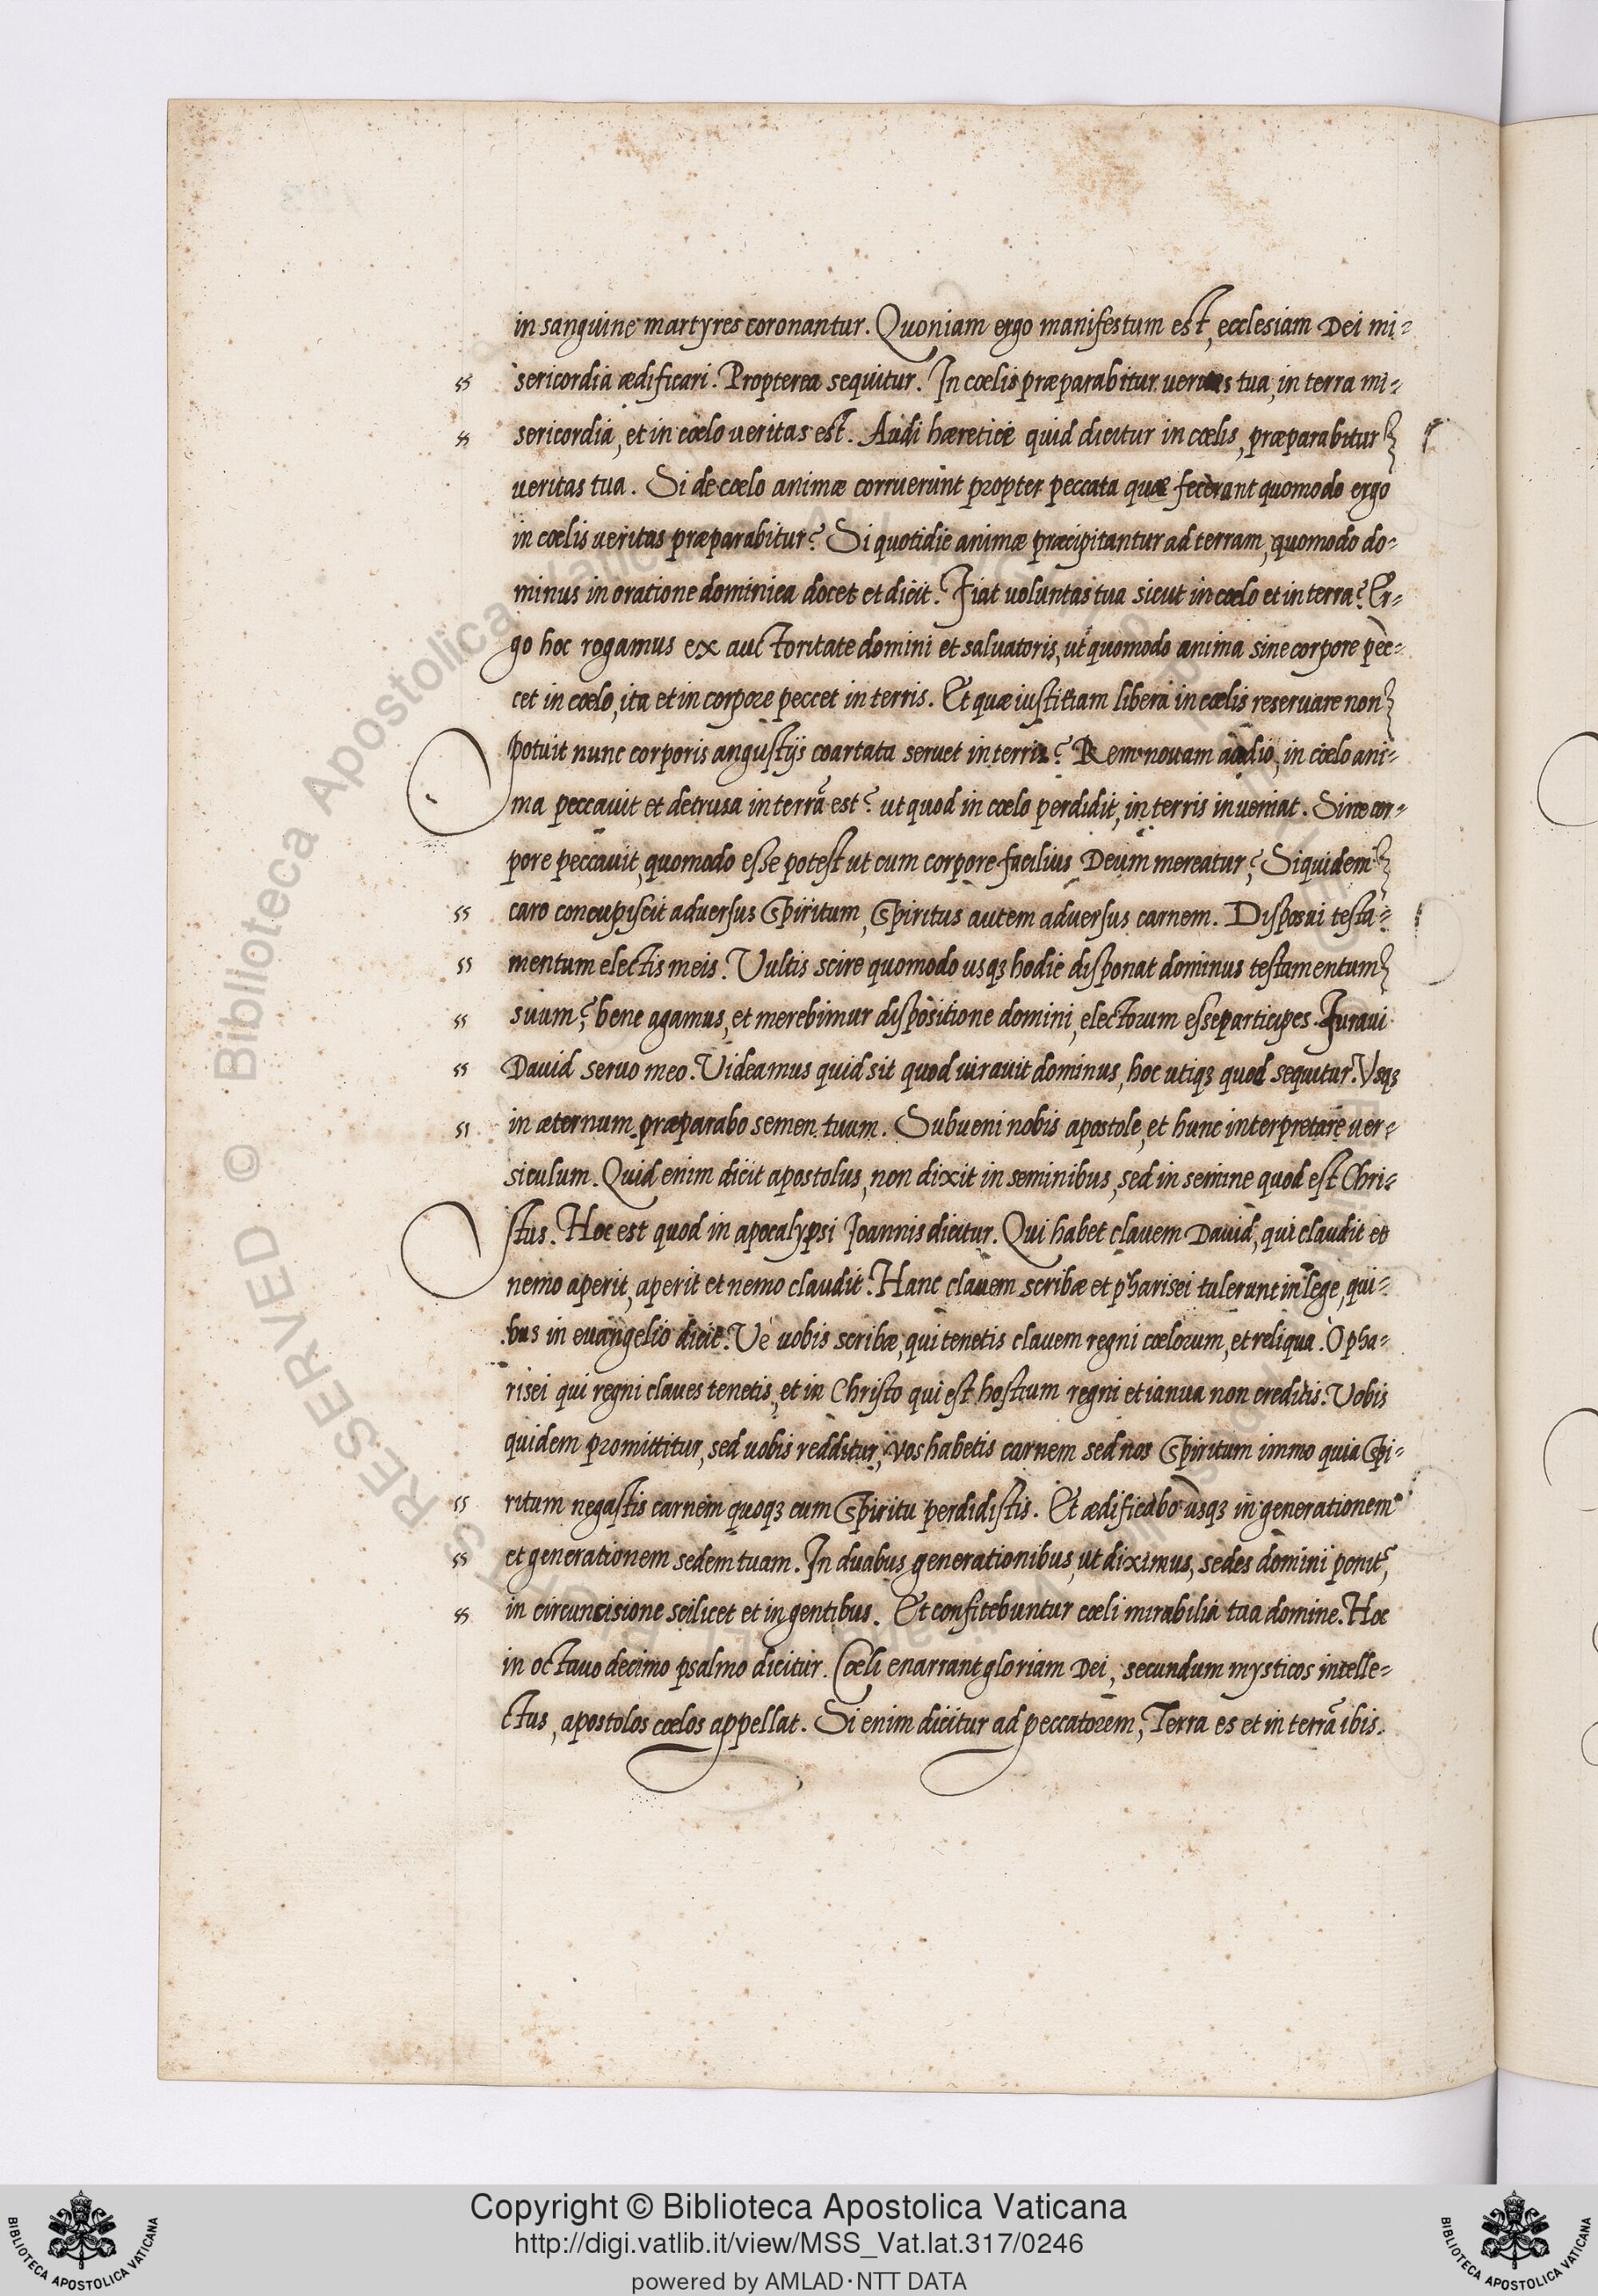 in sanguine martyres coronantur. Quoniam ergo manifestum est, ecclesiam Dei mi-
sericordia ædificari. Propterea sequitur. In cœlis præparabitur veritas tua, in terra mi-
sericordia, et in cœlo ueritas est. Audi hæretice quid dicitur in cœlis, præparabitur
veritas tua. Si de cœlo animæ corruerunt propter peccata quæ fecerant quomodo ergo
in cœlis ueritas præparabitur? Si quotidie animæ præcipitantur ad terram, quomodo do-
minus in oratione dominica docet et dicit. Fiat uoluntas tua sicut in cœlo et in terra? Er-
go hoc rogamus ex auctoritate domini et saluatoris, ut quomodo anima sine corpore pec-
cet in cœlo, ita et in corpore peccet in terris. Et quæ iustitiam libera in cœlis reseruare non
potuit nunc corporis angustijs coartata seruet in terris? Rem nouam audio, in cœlo ani-
ma peccauit et detrusa in terrã est? ut quod in cœlo perdidit, in terris inueniat. Sine cor-
pore peccauit, quomodo esse potest ut cum corpore facilius Deum mereatur? Siquidem
caro concupiscit aduersus Spiritum, Spiritus autem aduersus carnem. Disposui testa-
mentum electis meis. Vultis scire quomodo usqꝫ hodie disponat dominus testamentum
suum? bene agamus, et merebimur dispositione domini, electorum esse participes. Iuraui
Dauid seruo meo. Videamus quid sit quod iurauit dominus, hoc utiqꝫ quod sequitur. Vsqꝫ
in æternum præparabo semen tuum. Subueni nobis apostole, et hunc interpretare uer-
siculum. Quid enim dicit apostolus, non dixit in seminibus, sed in semine quod est Chri-
stus. Hoc est quod in apocalypsi Ioannis dicitur. Qui habet clauem Dauid, qui claudit et
nemo aperit, aperit et nemo claudit. Hanc clauem scribæ et pharisei tulerunt in lege, qui-
bus in euangelio dicit. Vè uobis scribæ, qui tenetis clauem regni cœlorum, et reliqua. O pha-
risei qui regni claues tenetis, et in Christo qui est hostium regni et ianua non creditis. Vobis
quidem promittitur, sed uobis redditur, vos habetis carnem sed nos Spiritum immo quia Spi-
ritum negastis carnem quoqꝫ cum Spiritu perdidistis. Et ædificabo usqꝫ in generationem
et generationem sedem tuam. In duabus generationibus, ut diximus, sedes domini ponit,
in circuncisione scilicet et in gentibus. Et confitebuntur cœli mirabilia tua domine. Hoc
in octauo decimo psalmo dicitur. Cœli enarrant gloriam Dei, secundum mysticos intelle-
ctus, apostolos cœlos appellat. Si enim dicitur ad peccatorem, Terra es et in terrã ibis.
Copyright © Biblioteca Apostolica Vaticana
http://digi.vatlib.it/view/MSS_Vat.lat.317/0246
powered by AMLAD·NTT DATA
BIBLIOTECA APOSTOLICA VATICANA
BIBLIOTECA APOSTOLICA VATICANA